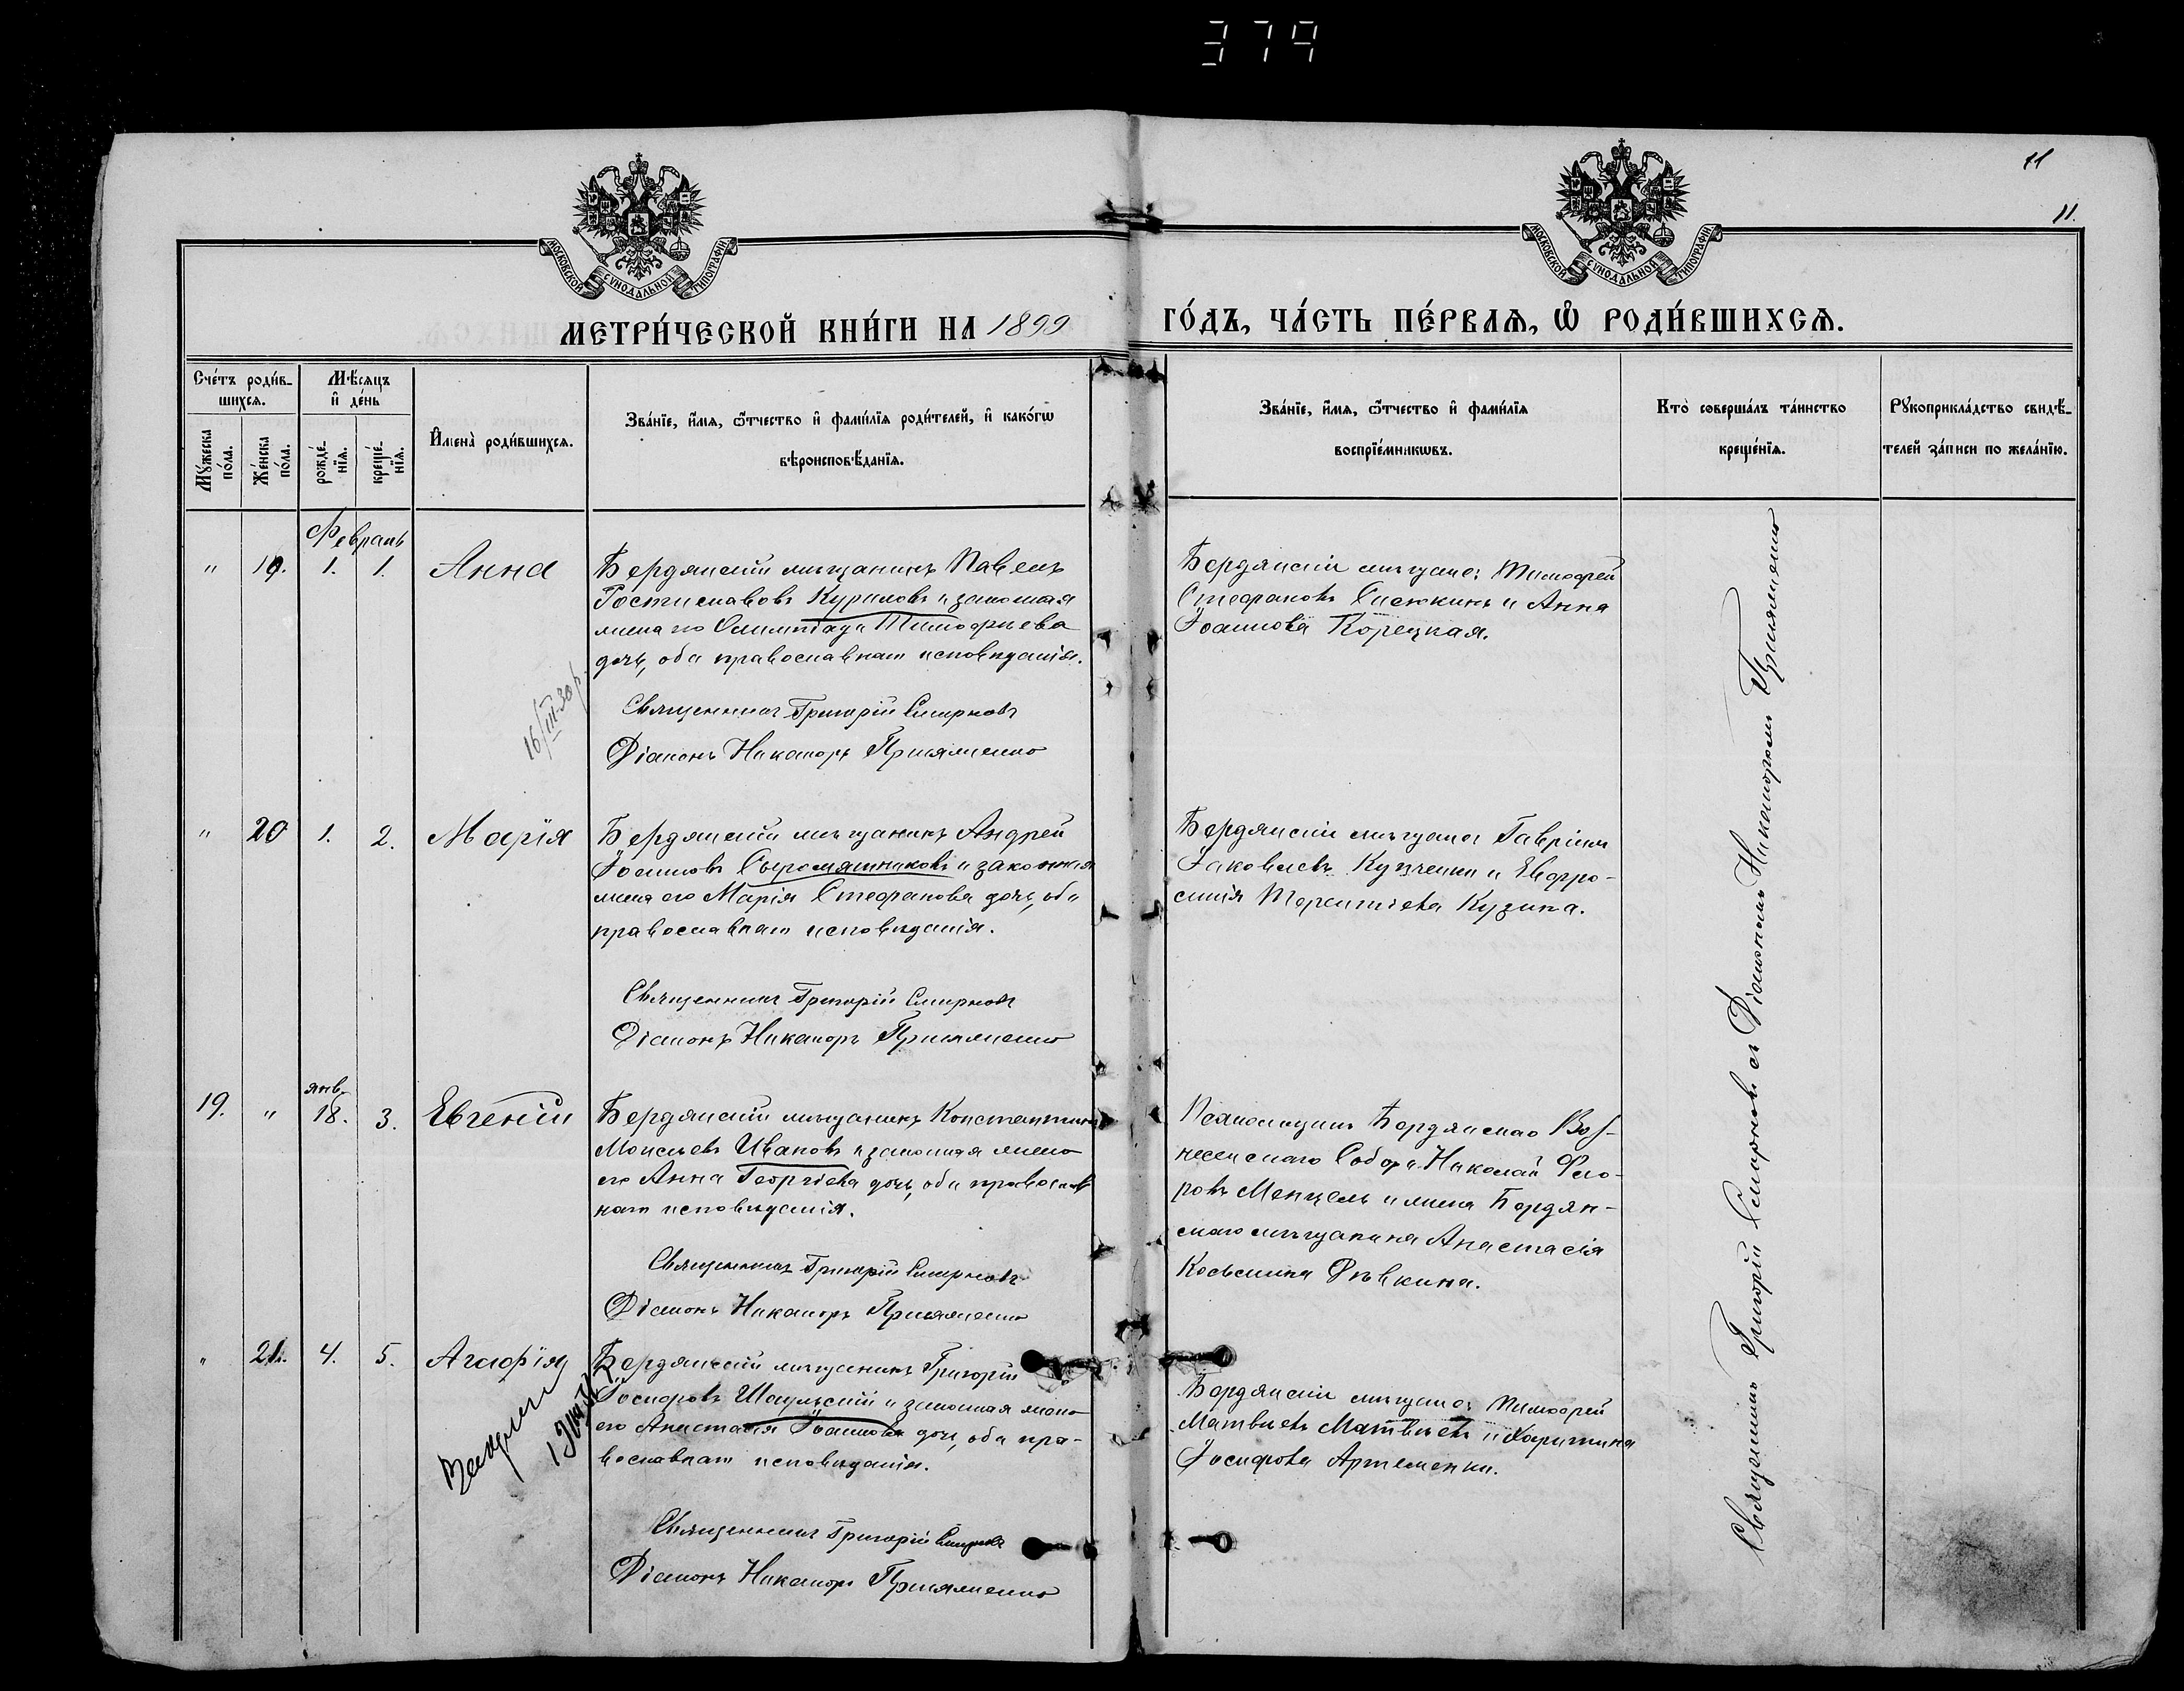 379
11
11.
МОСКОВСКОЙ СѴНОДАЛЬНОЙ ТИПОГРАФІИ
МОСКОВСКОЙ СѴНОДАЛЬНОЙ ТИПОГРАФІИ
МЕТРИ́ЧЕСКОЙ КНИ́ГИ НА 1899
ГО́ДЪ, ЧА́СТЬ ПЕ́РВАѦ, Ѿ РОДИ́ВШИХСѦ.
Сче́тъ роди́в-
шихсѧ.
Мѣ́сѧцъ
и҆ де́нь
Мꙋ́жеска
по́ла.
Же́нска
по́ла.
рожде́-
нїѧ.
креще́-
нїѧ.
И҆мена̀ роди́вшихсѧ.
Зва́нїе, и҆́мѧ, ѻ҆́тчество и҆ фами́лїѧ роди́телей, и҆ како́гѡ
вѣроисповѣ́данїѧ.
Зва́нїе, и҆́мѧ, ѻ҆́тчество и҆ фами́лїѧ
воспрїе́мникѡвъ.
Кто̀ соверша́лъ та́инство
креще́нїѧ.
Рꙋкоприкла́дство свидѣ́-
телей за́писи по жела́нїю.
Февраль
" 19. 1. 1. Анна
Бердянскій мѣщанинъ Павелъ
Ростиславовъ Куриловъ и законная
жена его Олимпіада Тимофеева
дочь, оба православнаго исповѣданія.
16/III-30 р.
Священникъ Григорій Смирновъ
Діаконъ Никаноръ Прияменко
Бердянскіе мѣщане: Тимофей
Стефановъ и Анна
Іоаннова Корецкая.
" 20 1. 2. Марія
Бердянскій мѣщанинъ Андрей
Іоанновъ Сыромятниковъ и законная
жена его Марія Стефанова дочь, оба
православнаго исповѣданія.
Священникъ Григорій Смирновъ
Діаконъ Никаноръ Прияменко
Бердянскіе мѣщане Гавріилъ
Іаковлевъ и Евфро-
синія Терентіева Кузина.
янв.
19. " 18. 3. Евгеній
Бердянскій мѣщанинъ Константинъ
Моисеевъ Ивановъ и законная жена
его Анна Георгіева дочь, оба православ
наго исповѣданія.
Священникъ Григорій Смирновъ
Діаконъ Никаноръ Прияменко
Псаломщикъ Бердянскаго Воз-
несенскаго Собора Николай Фло-
ровъ Менцель и жена Бердян-
скаго мѣщанина Анастасія
Косьмина
" 21. 4. 5. Агафія
Бердянскій мѣщанинъ Григорій
Іосифовъ и законная жена
его Анастасія Іоаннова дочь, оба пра-
вославнаго исповѣданія.
Священникъ Григорій Смирновъ
Діаконъ Никаноръ Прияменко
Бердянскіе мѣщане: Тимофей
Матвѣевъ Матвѣевъ и Харитина
Іосифова Артеменко.
Священникъ Григорій Смирновъ съ Діакономъ Никаноромъ Прияменко